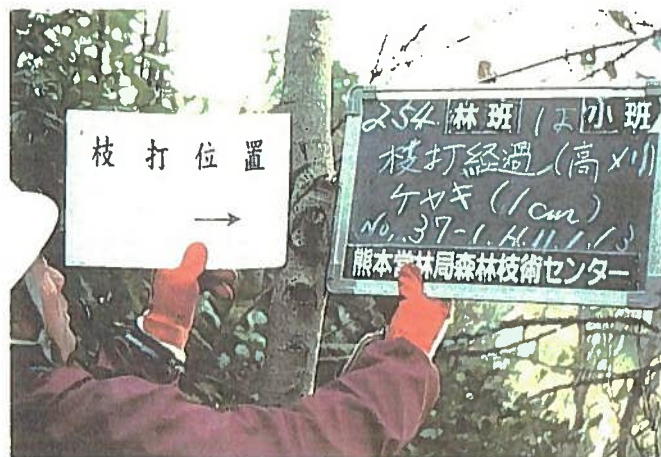 枝打位置
→
254. 林班 は 小班
枝打経過(高メリ)
ケヤキ(1cm)
No. 37-1. H.11.1.13
熊本営林局森林技術センター